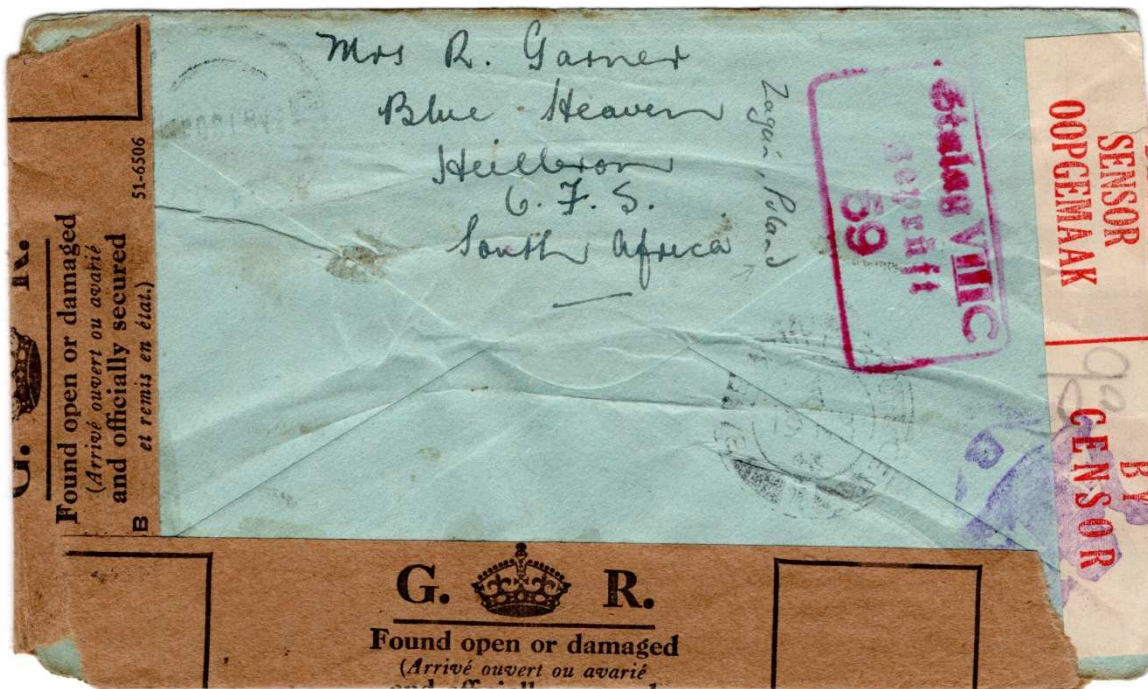 Mrs R. Garner
Blue Heaven
Heilbron
O.F.S.
South Africa
Zagań, Poland
Stalag VIIIC
Geprüft
59
SENSOR
OOPGEMAAK
BY
CENSOR
B
G. R.
Found open or damaged
(Arrivé ouvert ou avarié
and officially secured
et remis en état.)
B
51-6506
G. R.
Found open or damaged
(Arrivé ouvert ou avarié
and officially secured